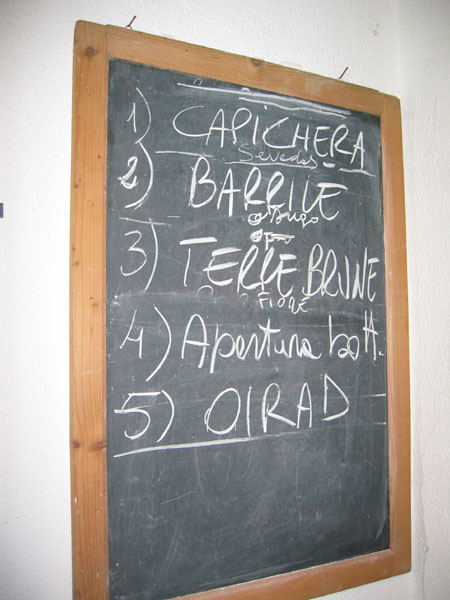 1) CAPICHERA
Sevadas
2) BARRILE
3) TERRE BRUNE
FIORE
4) Apertura
5) OIRAD